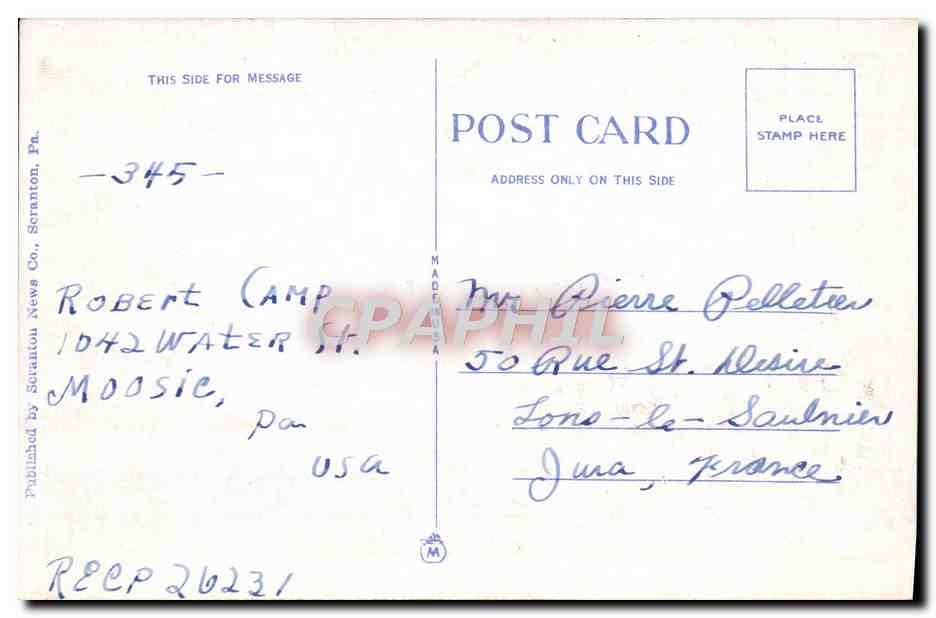 THIS SIDE FOR MESSAGE
- 345 -
ROBERT CAMP
1042 WATER St.
MOOSIC,
Pa
USA
RECP 26231
Published by Scranton News Co., Scranton, Pa.
MADE IN USA
M
POST CARD
ADDRESS ONLY ON THIS SIDE
PLACE
STAMP HERE
Mr Pierre Pelletier
50 Rue St. Desire
Lons-le-Saulnier
Jura, France
CPAPHIL